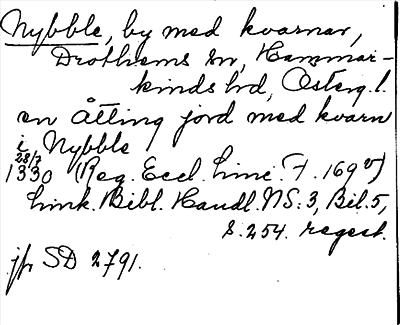 Nybble, by med kvarnar,
Drothems sn, Hammar-
kinds hd, Österg. l.
en åtting jord med kvarn
i Nybble
28/7
1330 (Reg. Eccl. Linc. F. 169 v)
Link. Bibl. Handl. NS: 3, Bil. 5,
s. 254. regest.
jfr SD 2791.